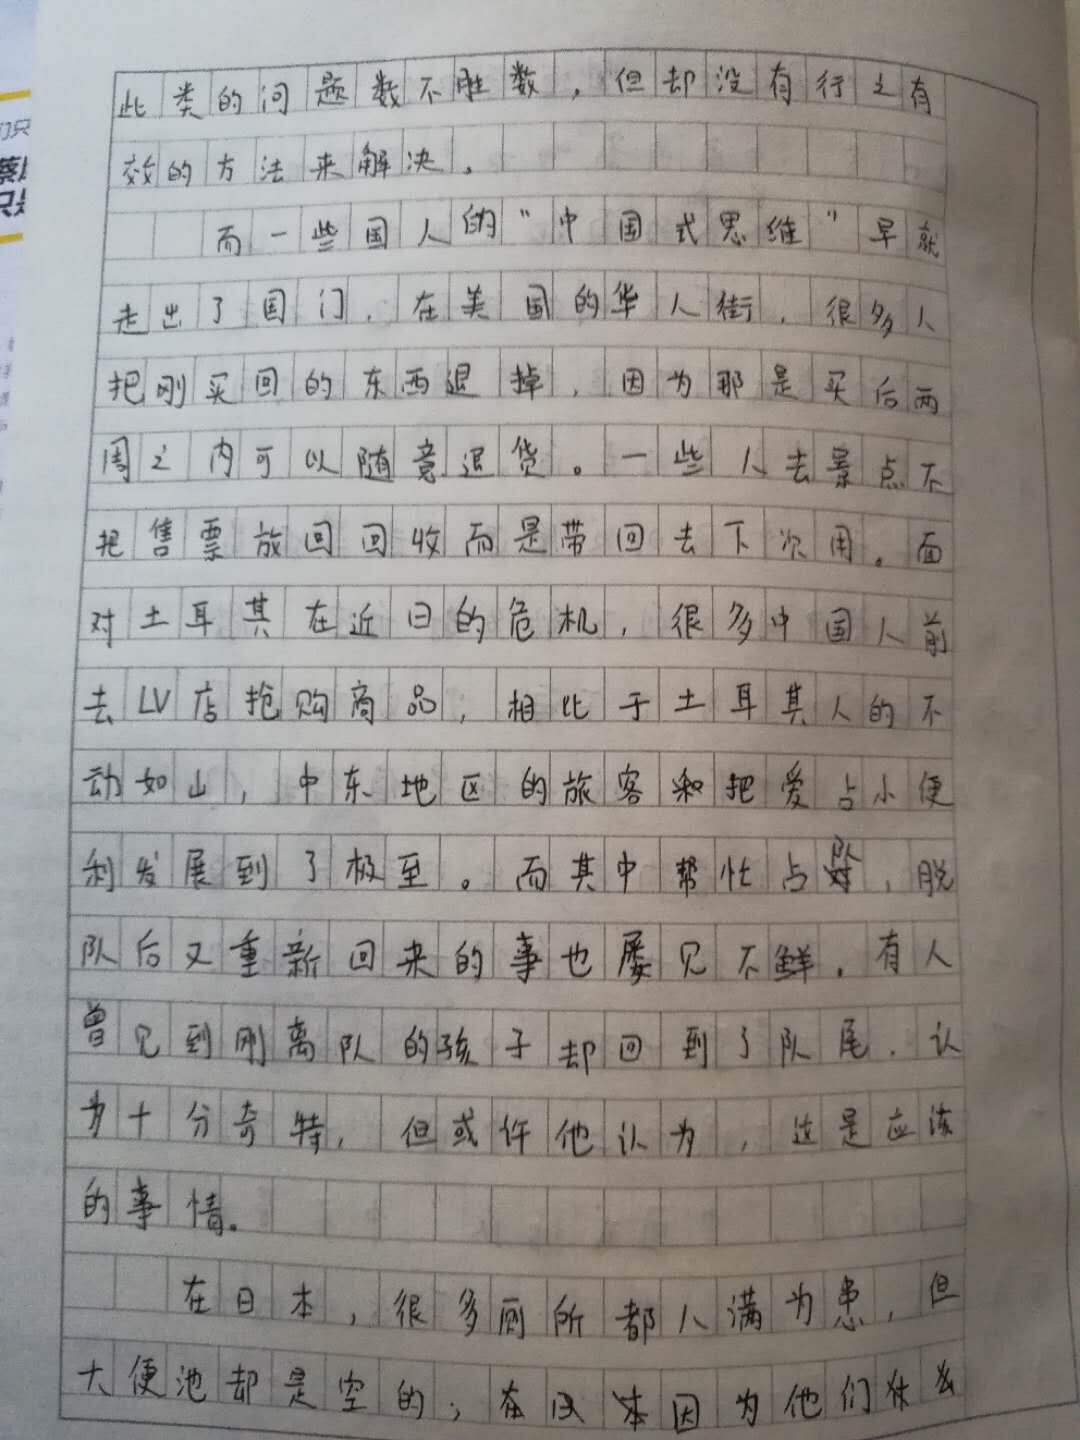 此类的问题数不胜数，但却没有行之有
效的方法来解决。
而一些国人的“中国式思维”早就
走出了国门，在美国的华人街，很多人
把刚买回的东西退掉，因为那是买后两
周之内可以随意退货。一些人去景点不
把售票放回回收而是带回去下次用。面
对土耳其在近日的危机，很多中国人前
去LV店抢购商品，相比于土耳其人的不
动如山，中东地区的旅客和把爱占小便
利发展到了极至。而其中帮忙占队，脱
队后又重新回来的事也屡见不鲜。有人
曾见到刚离队的孩子却回到了队尾，认
为十分奇特，但或许他认为，这是应该
的事情。
在日本，很多厕所都人满为患，但
大便池却是空的，在日本因为他们